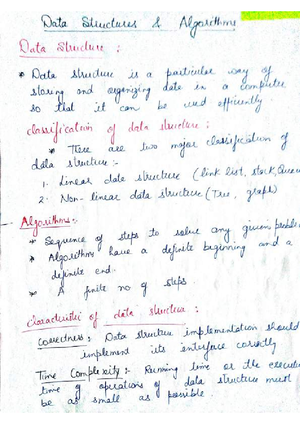 Data Structures & Algorithms
Data Structure :
* Data structure is a particular way of
storing and organizing data in a computer
so that it can be used efficiently.
classification of data structure :
* There are two major classification of
data structure :-
1. Linear data structure (link list, stack, Queue
2. Non-linear data structure (Tree, graph)
Algorithms:-
* Sequence of steps to solve any given problem
* Algorithms have a definite beginning and a
definite end.
* A finite no of steps.
characteristic of data structure :
correctness: Data structure implementation should
implement its interface correctly
Time Complexity:- Running time or the execution
time of operations of data structure must
be as small as possible.